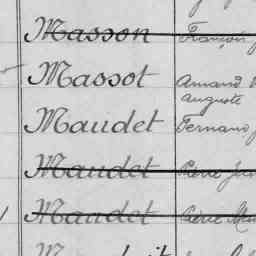 Masson François
Massot Amand
Auguste
Maudet Fernand
Maudet Pierre
Maudet Pierre